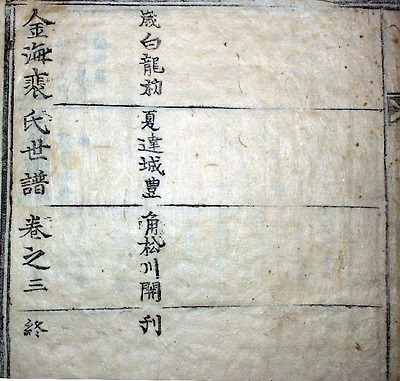 歲白龍初夏達城豊角松川開刊
金海裴氏世譜卷之三終